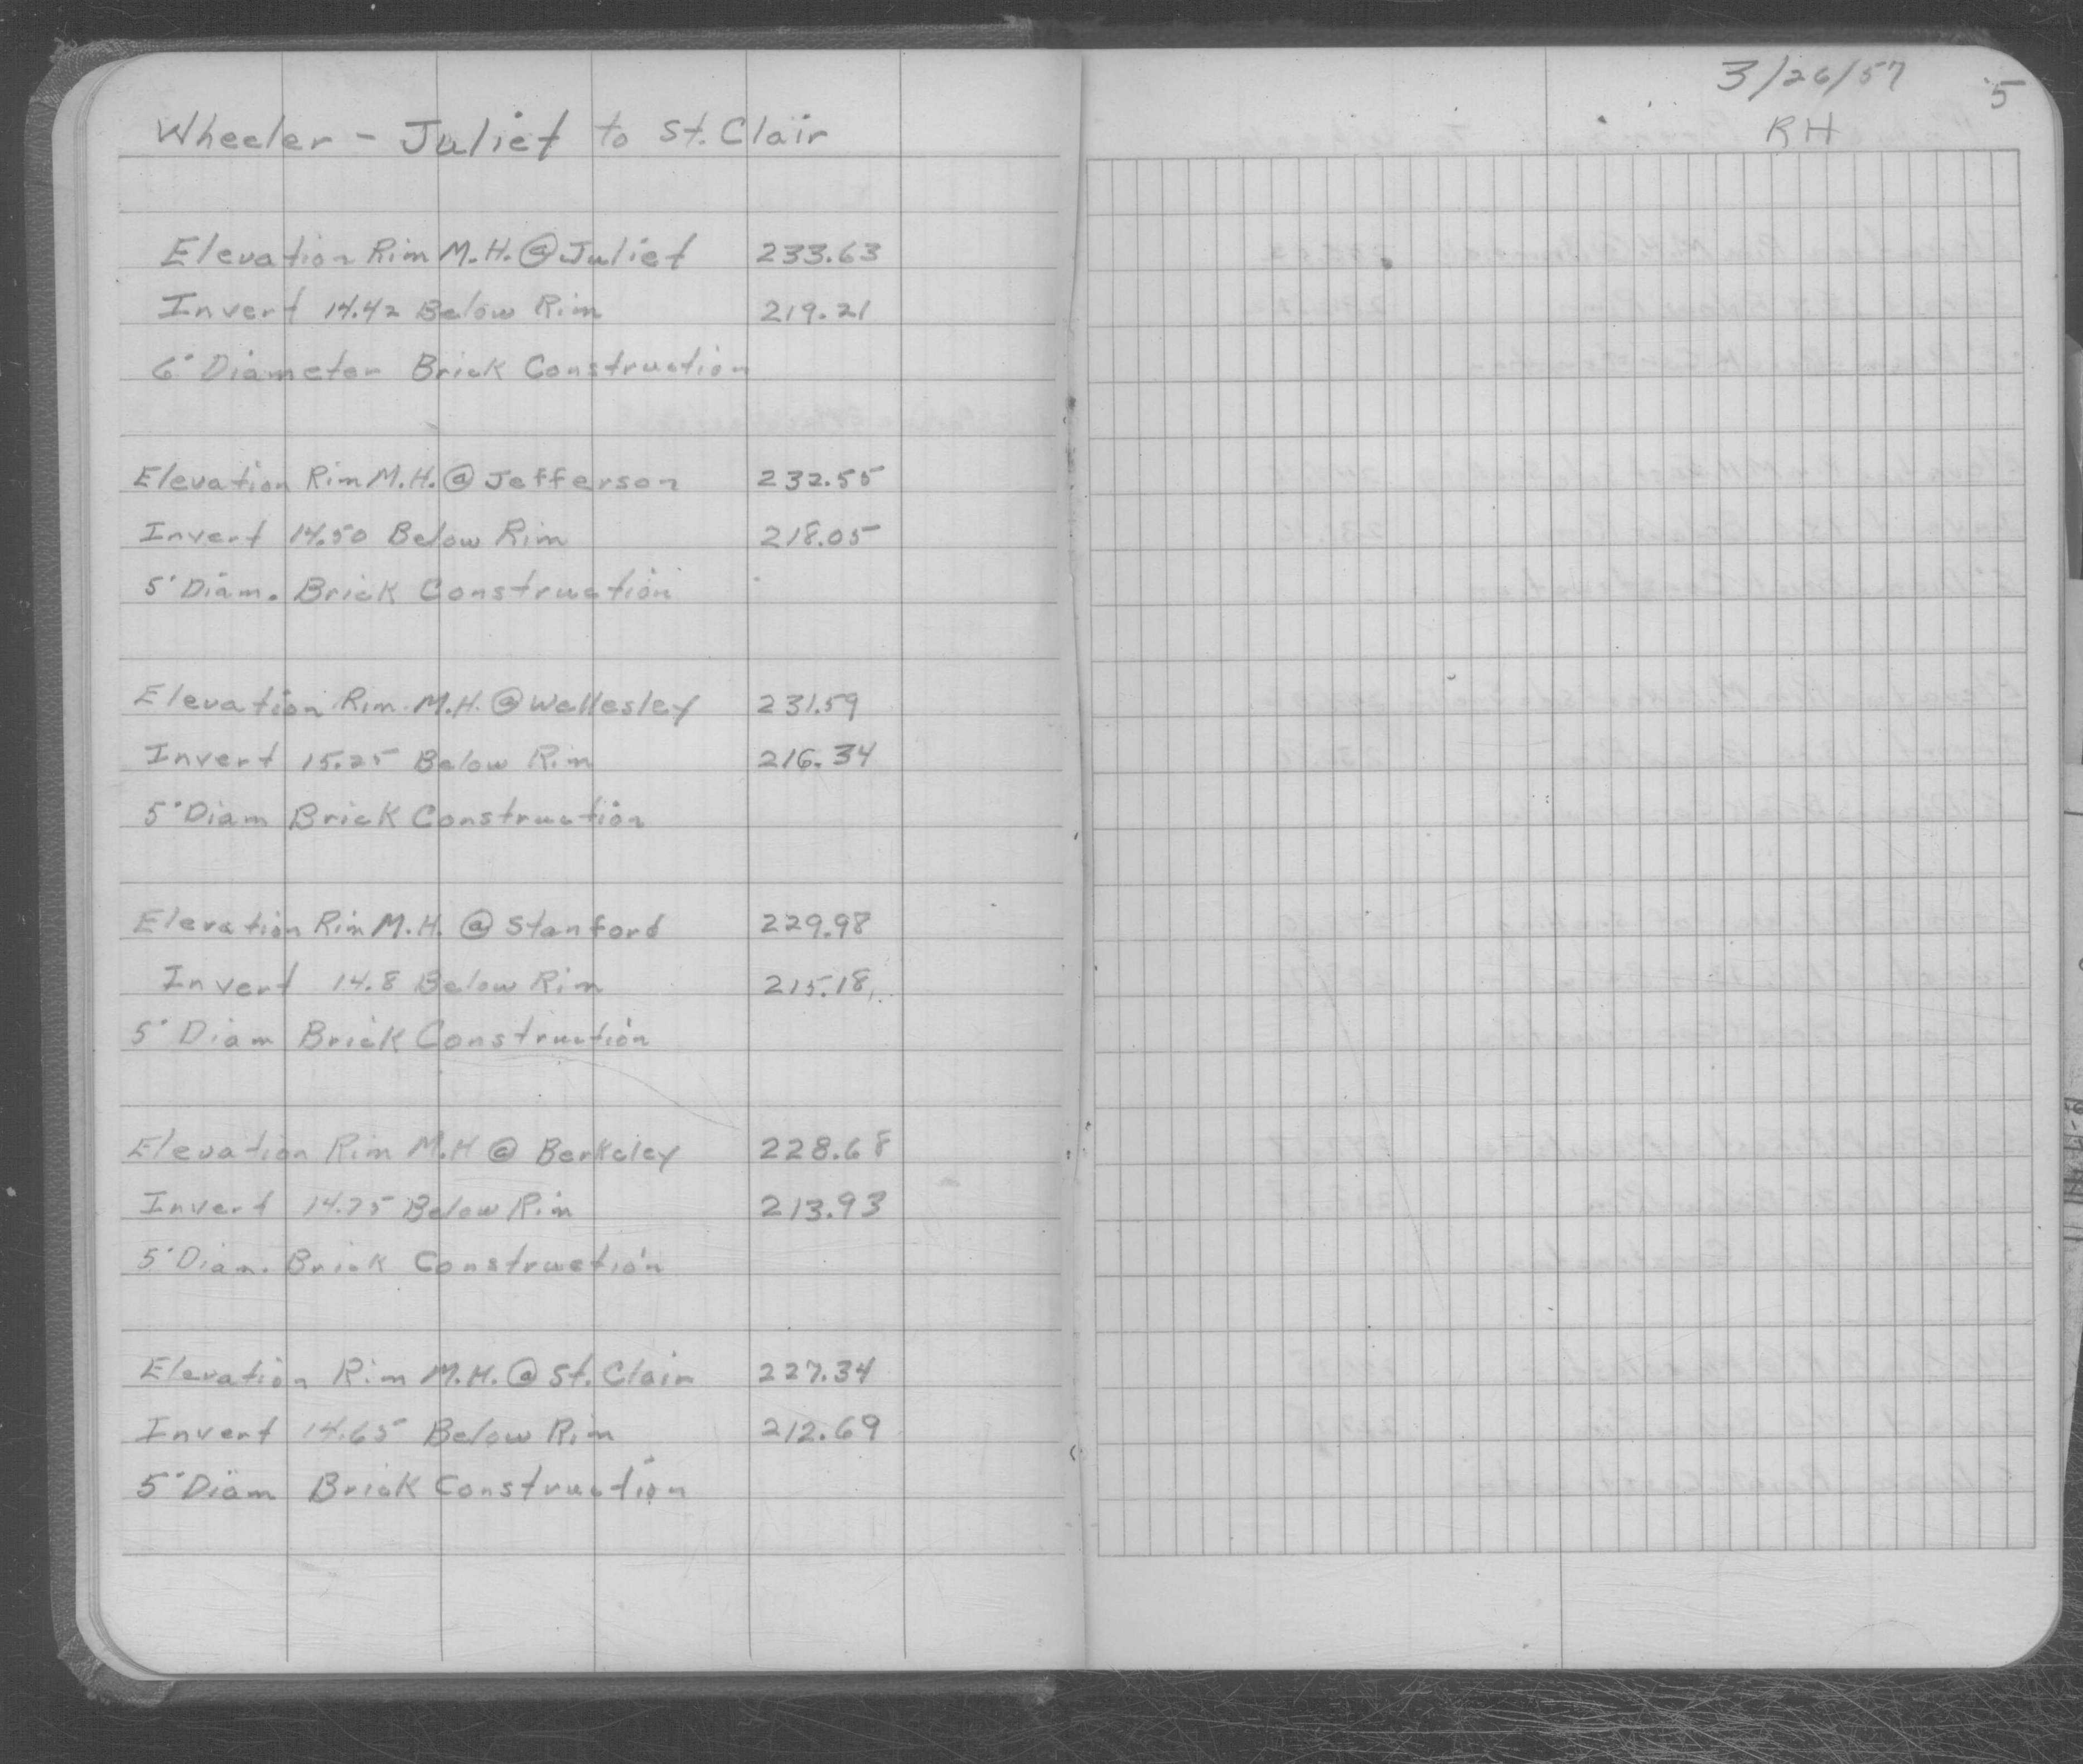 Wheeler - Juliet to St. Clair
Elevation Rim M.H. @ Juliet 233.63
Invert 14.42 Below Rim 219.21
6' Diameter Brick Construction
Elevation Rim M.H. @ Jefferson 232.55
Invert 14.50 Below Rim 218.05
5' Diam. Brick Construction
Elevation Rim M.H. @ Wellesley 231.59
Invert 15.25 Below Rim 216.34
5' Diam Brick Construction
Elevation Rim M.H. @ Stanford 229.98
Invert 14.8 Below Rim 215.18
5' Diam Brick Construction
Elevation Rim M.H @ Berkeley 228.68
Invert 14.75 Below Rim 213.93
5' Diam. Brick Construction
Elevation Rim M.H. @ St. Clair 227.34
Invert 14.65 Below Rim 212.69
5' Diam Brick Construction
3/26/57
5
RH